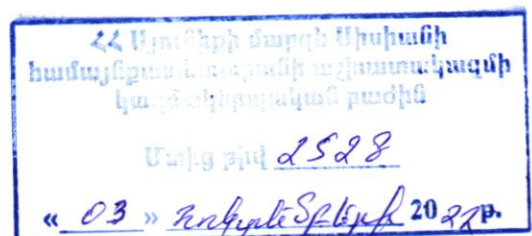 ՀՀ Սյունիքի մարզի Սիսիանի
համայնքապետարանի աշխատակազմի
կազմակերպական բաժին
Մտից թիվ 2528
« 03 » հոկտեմբերի 2022թ.